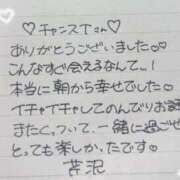 ♡チャンスTさん♡
ありがとうございました♡
こんなすぐ会えるなんて…!
本当に朝から幸せでした♡
イチャイチャしてのんびりお
またくっついて、一緒に過ごせ
とても楽しかったです♡
芹沢